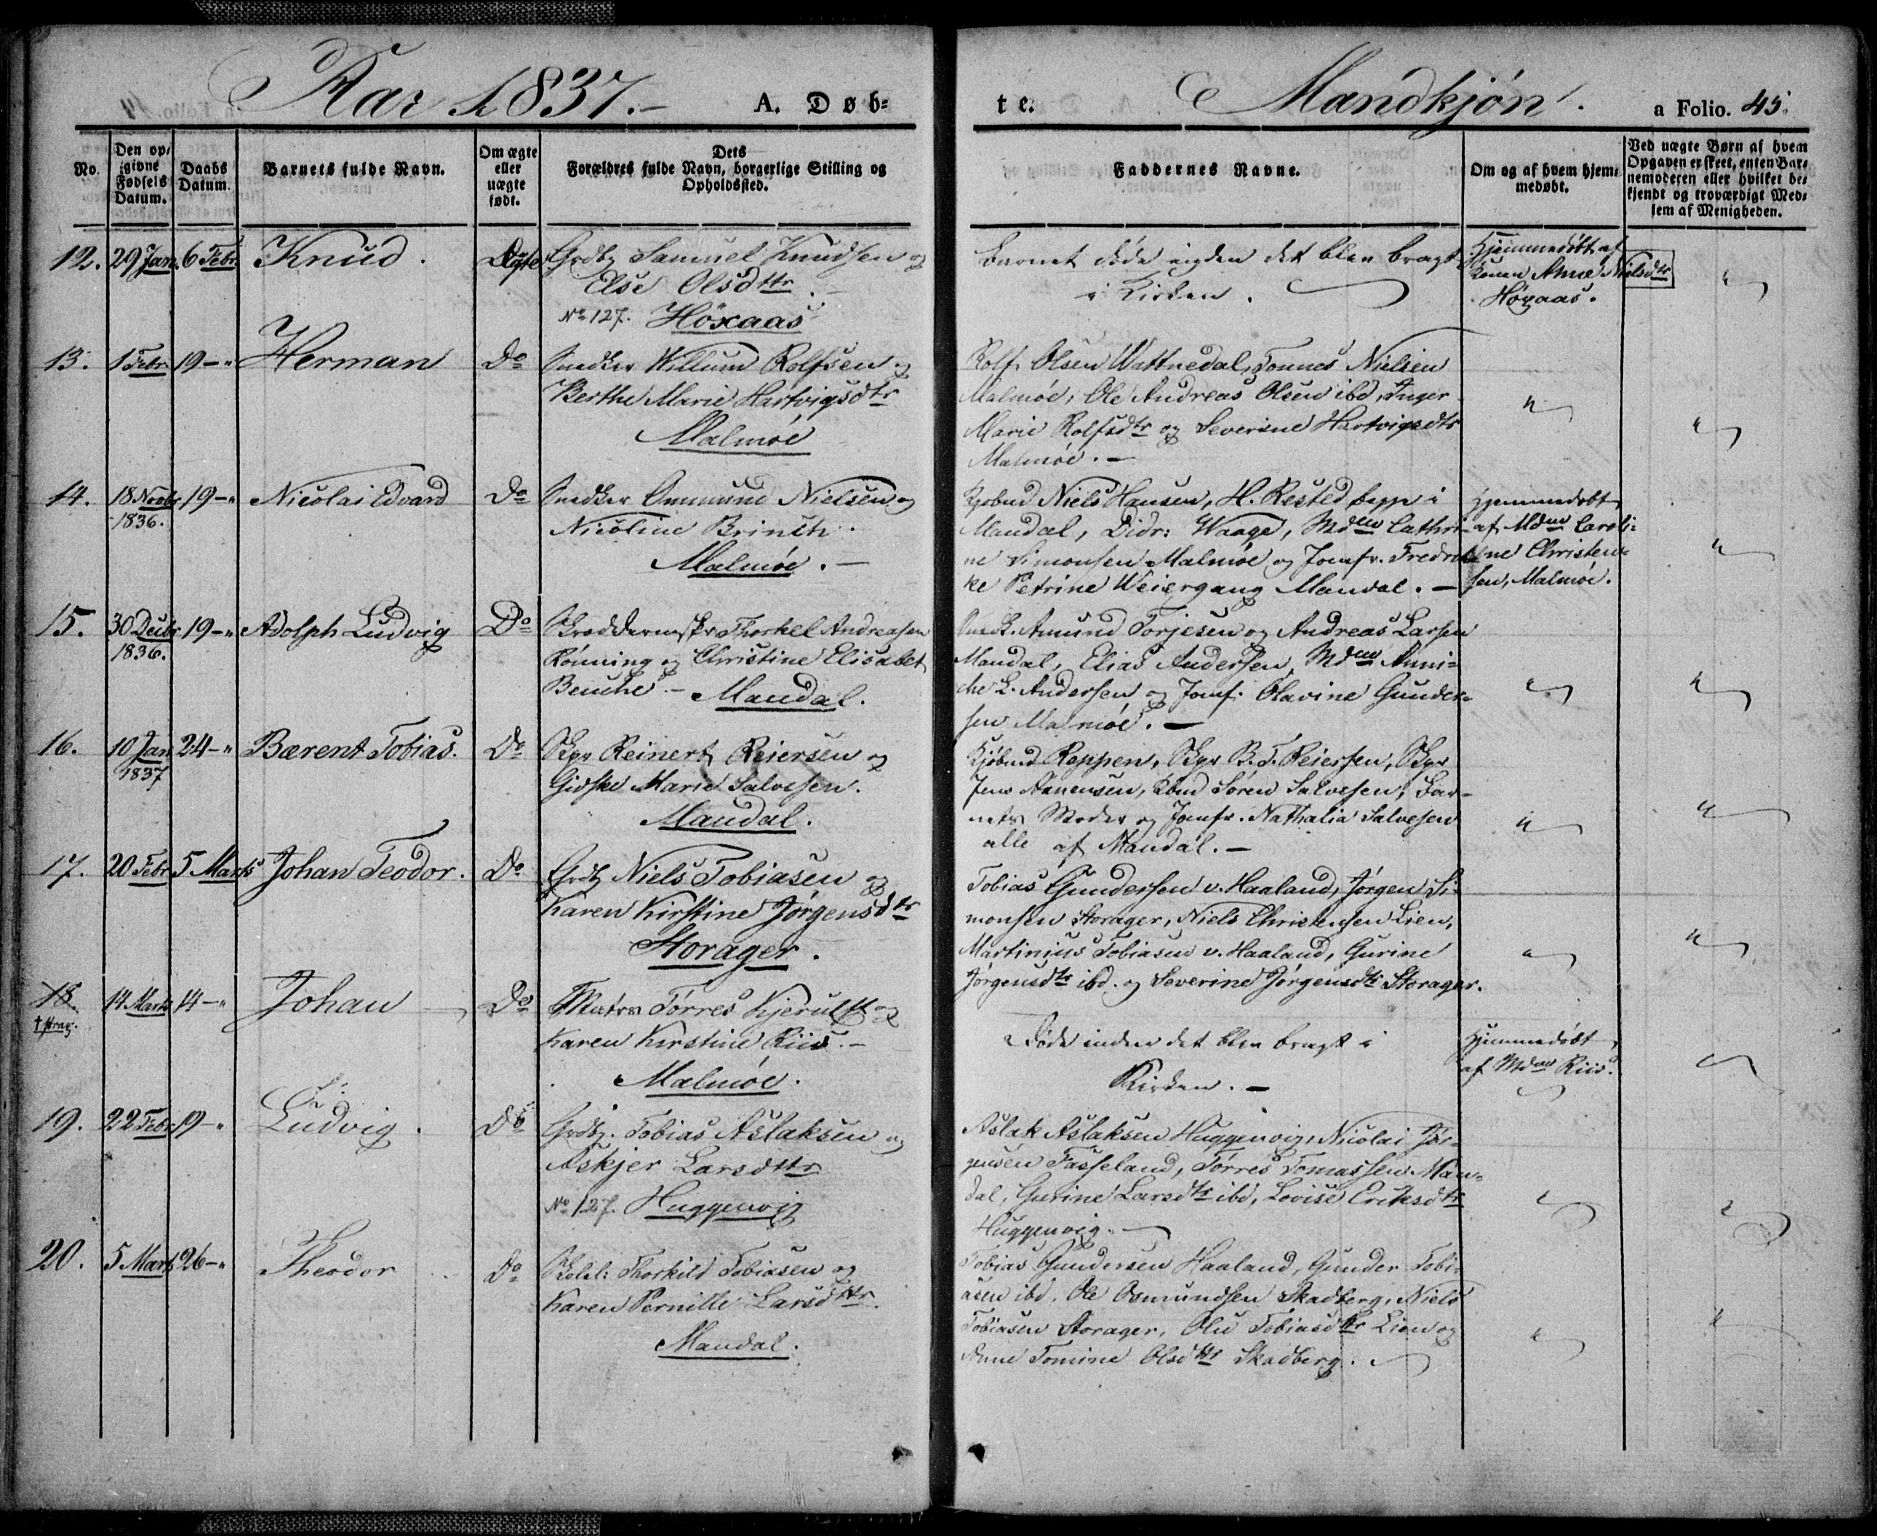 Aar 1837.- A. Døb-
te. Mandkjøn. a Folio. 45.
No.
Den op-
givne
Fødsels
Datum.
Daabs
Datum.
Barnets fulde Navn.
Om ægte
eller
uægte
født.
Dets
Forældres fulde Navn, borgerlige Stilling og
Opholdssted.
Faddernes Navne.
Om og af hvem hjem-
medøbt.
Ved uægte Børn af hvem
Opgaven er skeet, enten Bar-
nemoderen eller hvilket be-
kjendt og troværdigt Med-
lem af Menigheden.
12. 29 Jan. 6 Febr. Knud. Ægte Grdbr. Samuel Knudsen og
Else Olsdttr.
No 127. Höxaas
Barnet døde inden det blev bragt
i Kirken.
Hjemmedøbt af
Konen Anne Nielsdtr
Høxaas.
13. 1 Febr. 19-" Herman Do Snedker Willum Rolfsen og
Berthe Marie Hartvigsdtr
Malmøe
Rolf Olsen Wattnedal, Tønnes Nielsen
Malmøe, Ole Andreas Olsen ibd, Inger
Marie Rolfsdtr og Severine Hartvigsdtr
Malmøe.-
14. 18 Novbr 1836. 19-" Nicolai Edvard Do Snedker Ommund Nielsen og
Nicoline Brinch.
Malmøe.-
Kjøbmd Niels Hansen, H. Rested begge i
Mandal, Didr: Waage, Mdm Cathri-
ne Simonsen Malmøe og Jomfr. Fredrik-
ke Petrine Weiergang Mandal.-
Hjemmedøbt
af Mdm Caroli-
ne Christen-
sen, Malmøe.
15. 30 Decbr 1836. 19-" Adolph Ludvig Do Skræddermstr Thorkel Andreasen
Rønning og Christine Elisabet
Benche - Mandal.
Snedk. Amund Torjesen og Andreas Larsen
Mandal, Elias Andersen, Mdm Anni-
che L. Andersen og Jomf. Olavine Gunder-
sen Malmøe.-
16. 10 Jan 1837 24-" Bærent Tobias. Do Skpr Reinert Reiersen og
Gidske Marie Salvesen.
Mandal.
Kjøbmd Reppen, Skpr B. T. Reiersen, Skpr
Jens Aanensen, Kbmd Søren Salvesen, Bar-
nets Moder og Jomfr. Nathalia Salvesen
alle af Mandal.-
17. 20 Febr 5 Marts Johan Teodor. Do Grdbr Niels Tobiasen og
Karen Kirstine Jørgensdtr
Storager.
Tobias Gundersen v. Haaland, Jørgen Si-
monsen Storager, Niels Christensen Lien,
Martinius Tobiasen v. Haaland, Gurine
Jørgensdtr ibd. og Severine Jørgensdtr Storager.
18 14 Marts 14-" Johan Do Matros Tørres Kjerulff og
Karen Kirstine Riis.-
Malmøe.
Døde inden det blev bragt i
Kirken.-
Hjemmedøbt
af Mdm Riis.
19. 22 Febr 19-" Ludvig. Do Grdbr. Tobias Aslaksen og
Askjer Larsdttr
No 127. Huggenvig
Aslak Aslaksen Huggenvig, Nicolai Jør-
gensen Fasseland, Tørres Tomassen Man-
dal, Gurine Larsdtr ibd, Lovise Eriksdtr
Huggenvig.-
20. 5 Marts 26-" Theodor Do Thorkild Tobiasen og
Karen Pernille Larsdttr.
Mandal.
Tobias Gundersen Haaland, Gunder Tobi-
asen ibd, Ole Osmundsen Skadberg, Niels
Tobiasen Storager, Olu Tobiasdttr Lien og
Anne Tomine Olsdttr Skadberg.